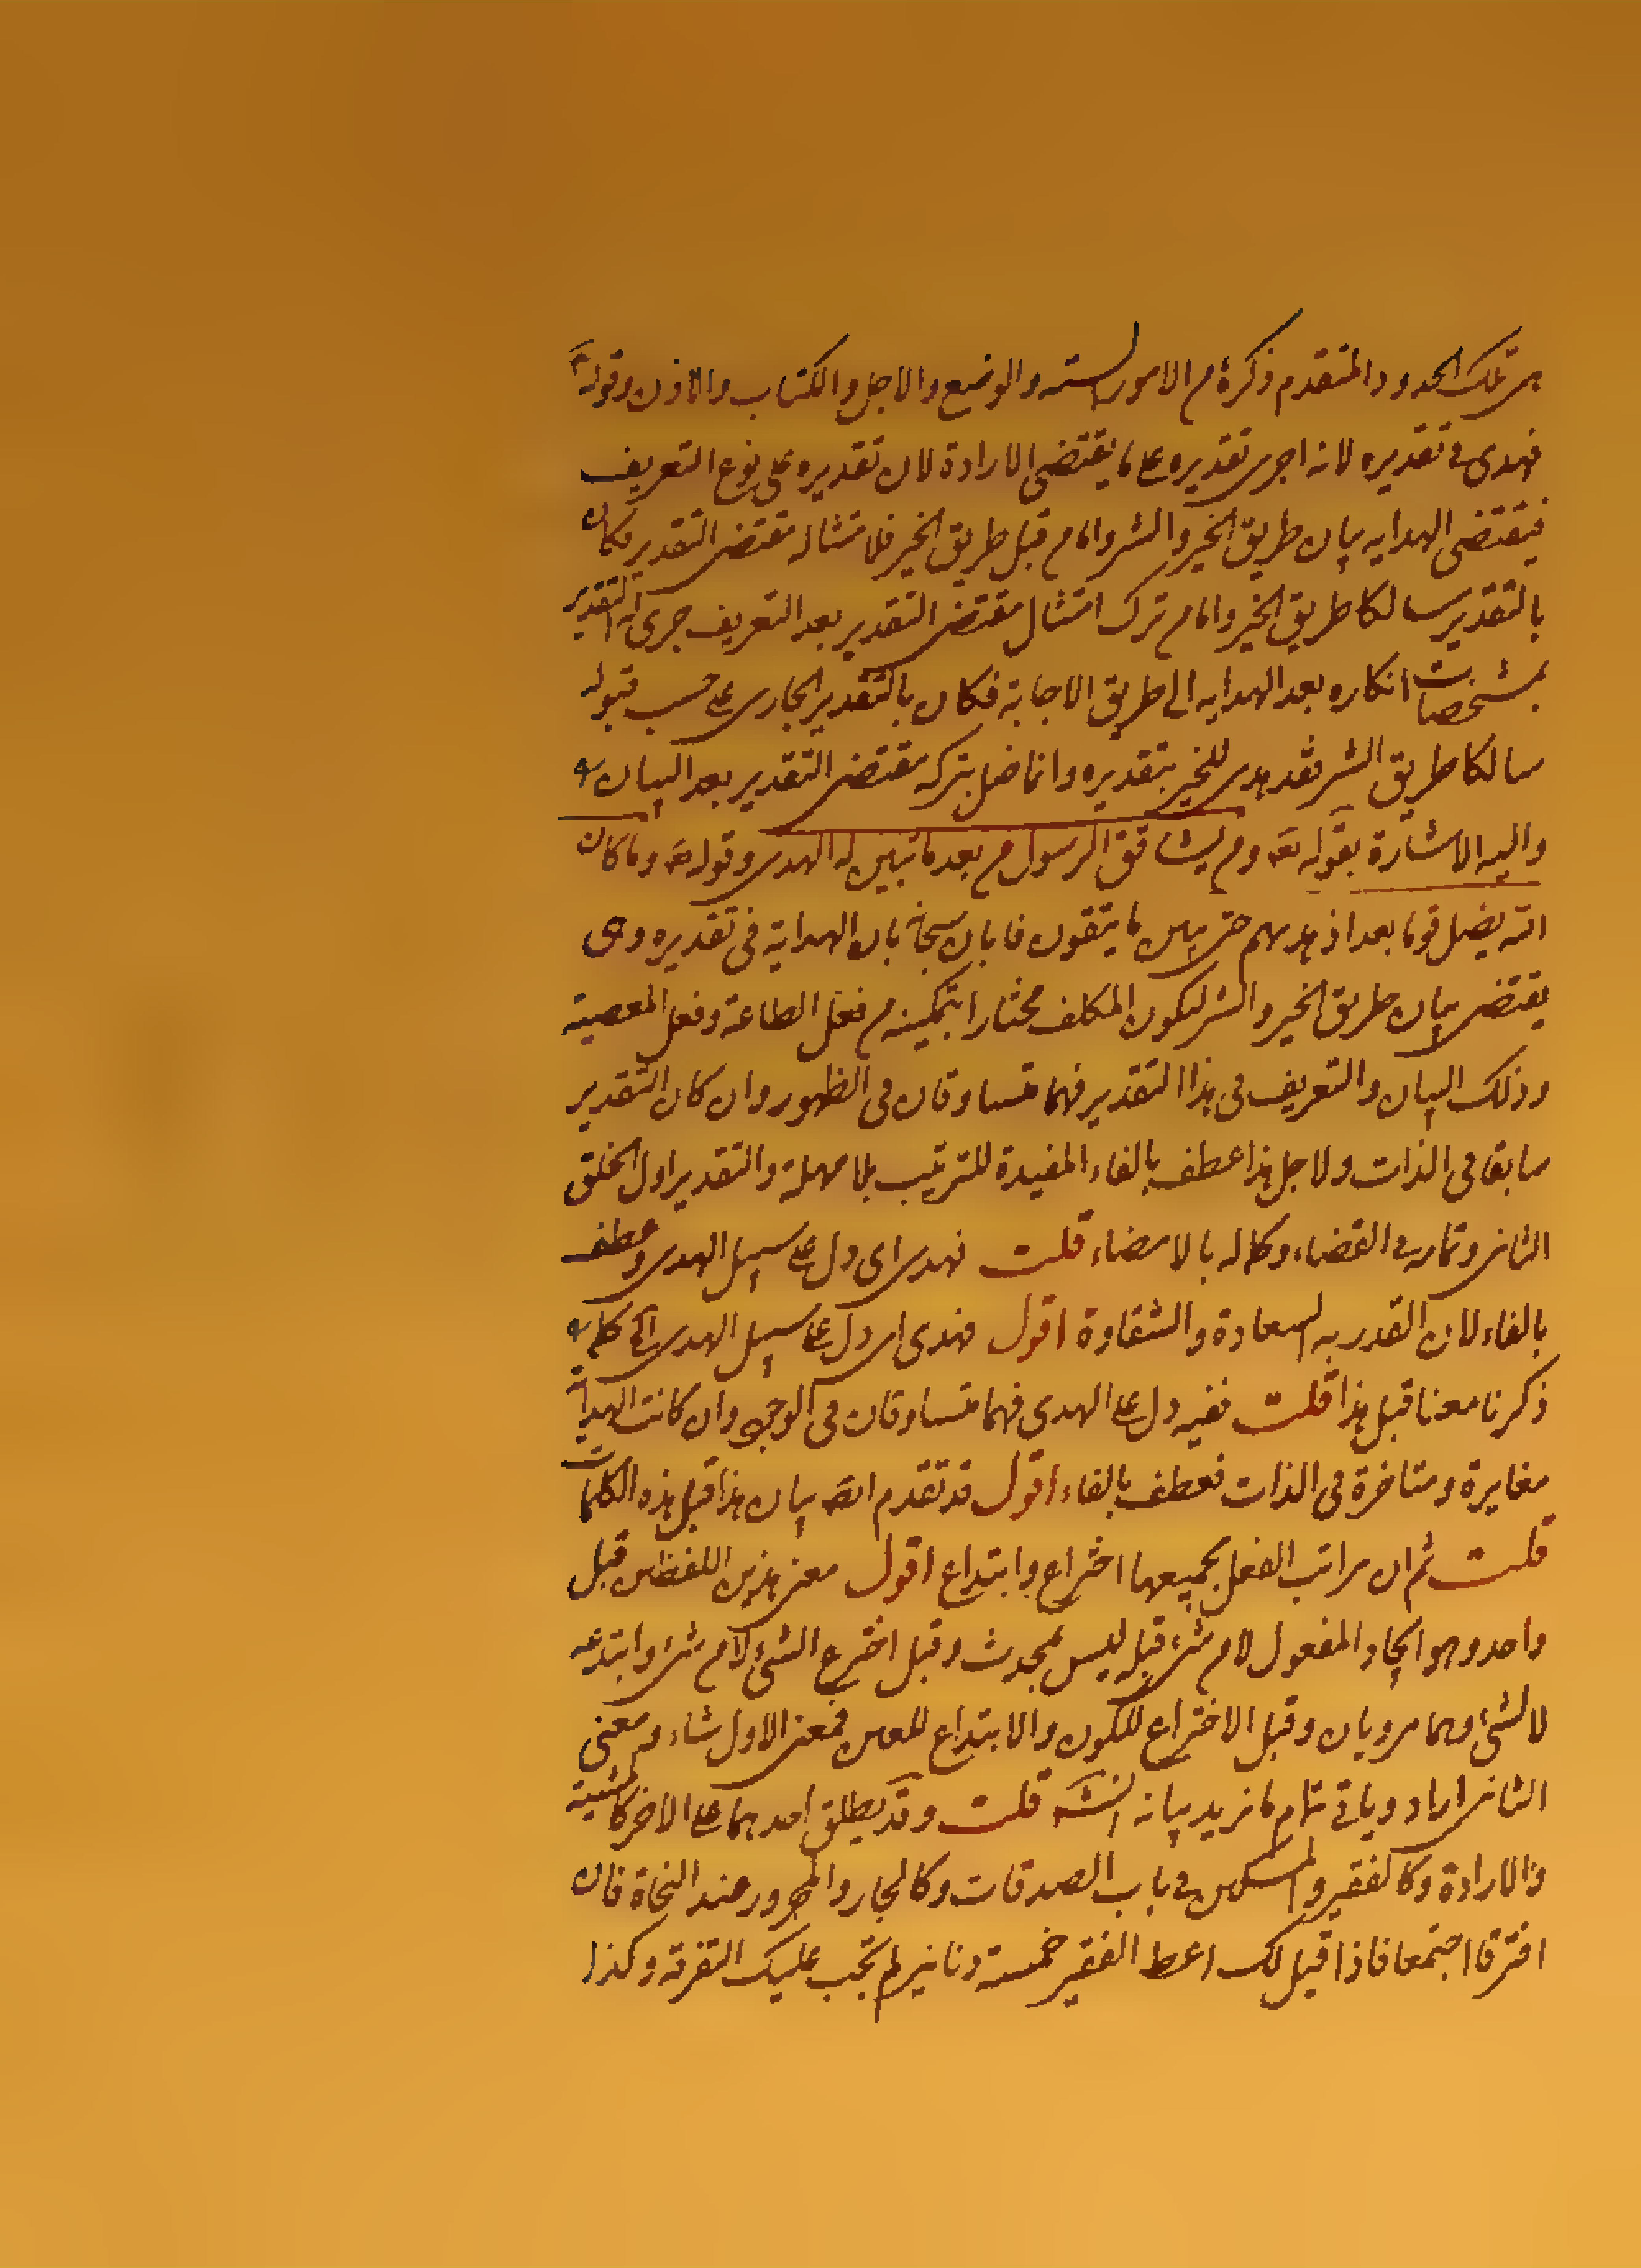 هي تلك الحدود المتقدم ذكره من الامور الستة والوضع والاجل والكتاب والاذن وقوله تع
فهدى في تقديره لانه اجرى تقديره على ما يقتضى الارادة لان تقديره على نوع التعريف
فيقتضى الهدايه بيان طريق الخير والشر وامام قبل طريق الخير فلا متثاله مقتضى التقدير فكان
بالتقدير سالكا طريق الخير وامام ترك امتثال مقتضى التقدير بعد التعريف جرى له التقدير
بمشخصات انكاره بعد الهدايه الى طريق الاجابة فكان بالتقدير الجارى على حسب قبوله
سالكا طريق الشر فقد هدى للخير بتقديره وانما ضل بتركه مقتضى التقدير بعد البيان له
واليه الاشارة بقوله تع ومن يشاقق الرسول من بعد ما تبين له الهدى وقوله تع وما كان
الله ليضل قوما بعد اذ هديهم حتى يبين ما يتقون فابان سبحانه بان الهداية في تقديره وهى
يقتضى بيان طريق الخير والشر ليكون المكلف مختارا بتمكينه من فعل الطاعة وفعل المعصية
وذلك البيان والتعريف في هذا التقدير فهما متساوقان في الظهور وان كان التقدير
سابقا في الذات ولاجل هذا عطف بالفاء المفيدة للترتيب بلا مهملة والتقدير اول الخلق
الثانى وتمامه في القضاء وكماله بالامضاء قلت فهدى اى دل على سبيل الهدى وعطف
بالفاء لان القدر به السعادة والشقاوة اقول فهدى اى دل على سبيل الهدى الى كما
ذكرنا معنا قبل هذا قلت ففيه دل على الهدى فهما متساوقان في الوجود وان كانت الهداية
مغايرة ومتاخرة في الذات فعطف بالفاء اقول قد تقدم ايضا بيان هذا قبل هذه الكلمات
قلت ثم ان مراتب الفعل بجميعها اختراع وابتداع اقول معنى هذين اللفظين قيل
واحد وهو ايجاد المفعول لا من شىء قبله ليس بمحدث وقيل اخترع الشىء لا من شىء وابتدعه
لا لشىء وهما مرويان وقيل الاختراع للكون والابتداع للعين فمعنى الاول شاء ومعنى
الثانى اراد وياتى تمام ما نريد بيانه انشه قلت وقد يطلق احدهما على الاخر كالمشية
والارادة وكالفقير والمسكين في باب الصدقات وكالجار والمجرور عند النحاة فان
افترقا اجتمعا فاذا قيل لك اعط الفقير خمسة دنانير لم تجب عليك التفرقة وكذا